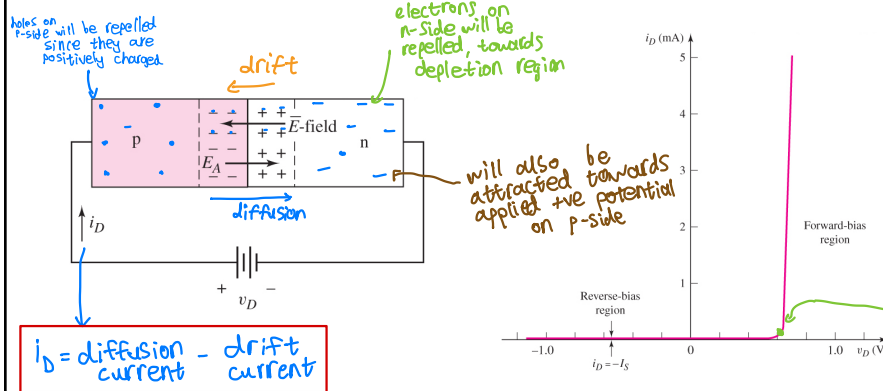 holes on
p-side will be repelled
since they are
positively charged
drift
electrons on
n-side will be
repelled, towards
depletion region
p
− −
− −
− −
− −
+ +
+ +
+ +
+ +
E̅-field
E_A
n
diffusion
will also be
attracted towards
applied +ve potential
on p-side
i_D
+ v_D −
i_D = diffusion current - drift current
i_D (mA)
5
4
3
2
1
Forward-bias
region
Reverse-bias
region
−1.0
0
1.0
v_D (V
i_D = −I_S